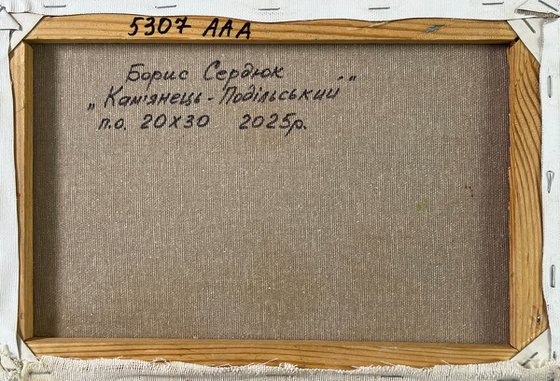 5307 ААА
Борис Сердюк
„Кам'янець-Подільський"
п.о. 20х30 2025р.